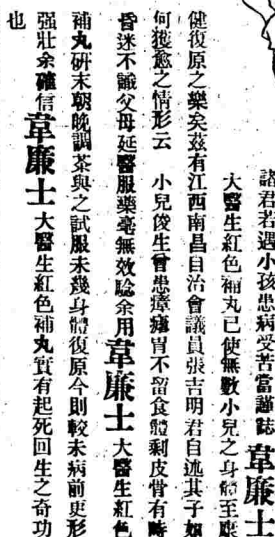 諸君若遇小孩患病受苦當謹誌韋廉士
大醫生紅色補丸已使無數小兒之身體至康
健復原之樂矣茲有江西南昌自治會議員張吉明君自述其子如
何獲愈之情形云 小兒俊生曾患瘴瘧胃不留食體剩皮骨有時
昏迷不識父母延醫服藥毫無效驗余用韋廉士大醫生紅色
補丸研末朝晚調茶與之試服未幾身體復原今則較未病前更形
强壯余確信韋廉士大醫生紅色補丸實有起死回生之奇功
也